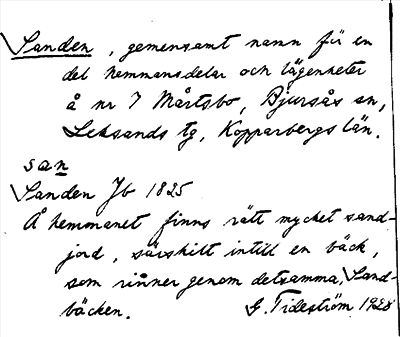 Sanden, gemensamt namn för en
del hemmansdelar och lägenheter
å nr 7 Mårtsbo, Bjursås sn,
Leksands tg, Kopparbergs län.
san
Sanden Jb 1825
Å hemmanet finns rätt mycket sand-
jord, särskilt intill en bäck,
som rinner genom detsamma, Sand-
bäcken. G. Tideström 1928